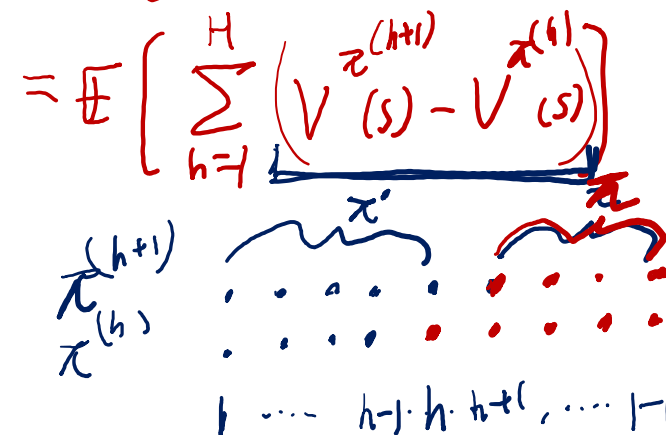 = E [ H ∑ h=1 ( V^{π^{(h+1)}}(s) − V^{π^{(h)}}(s) ) ]
π' π
π^{(h+1)}
π^{(h)}
1 ···· h-1 · h · h+1 , ····